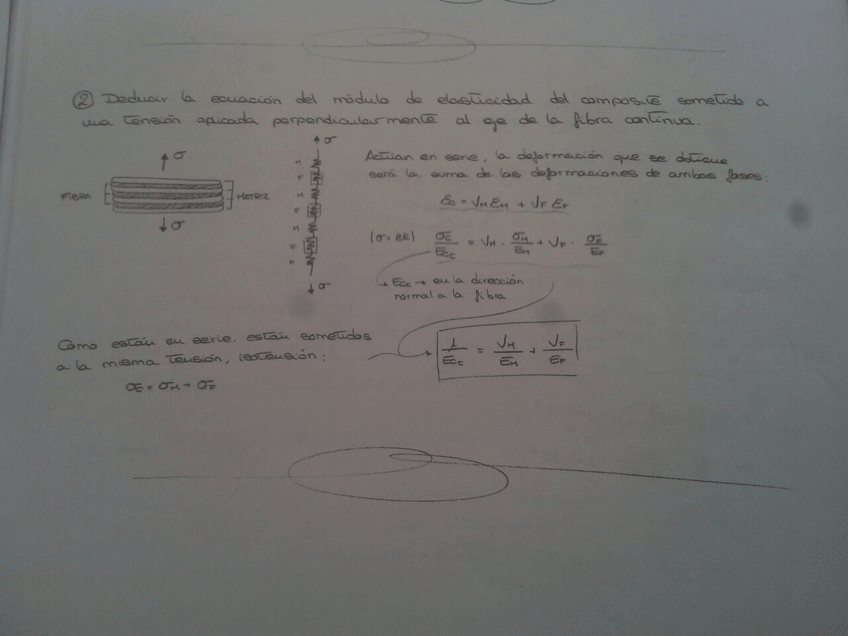 ② Deducir la ecuación del módulo de elasticidad del composite sometido a
una tensión aplicada perpendicularmente al eje de la fibra continua.
σ
FIBRA
MATRIZ
σ
σ
M
F
M
F
M
F
M
σ
Actúan en serie, la deformación que se obtiene
será la suma de las deformaciones de ambas fases:
εc = VM εM + VF εF
(σ = Eε) σc/Ecc = VM · σM/EM + VF · σF/EF
→ Ecc → en la dirección
normal a la fibra
Como están en serie, están sometidos
a la misma tensión, isotensión:
σc = σM = σF
1/Ecc = VM/EM + VF/EF